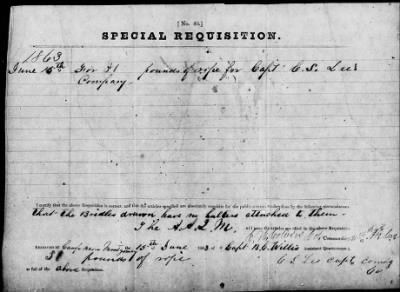 [No. 40.]
SPECIAL REQUISITION.
1863
June 15th For 31 pounds of rope for Capt C. S. Lee's
Company
I certify that the above Requisition is correct, and that the articles specified are absolutely requisite for the public service, rendered so by the following circumstances:
that the Bridles drawn have no halters attached to them
The A. A. Q. M.
will issue the articles specified in the above Requisition.
Commanding
15th June 1863 of Capt B. C. Willis
31 pounds of rope
C S Lee capt comdg
in full of the above Requisition. Co